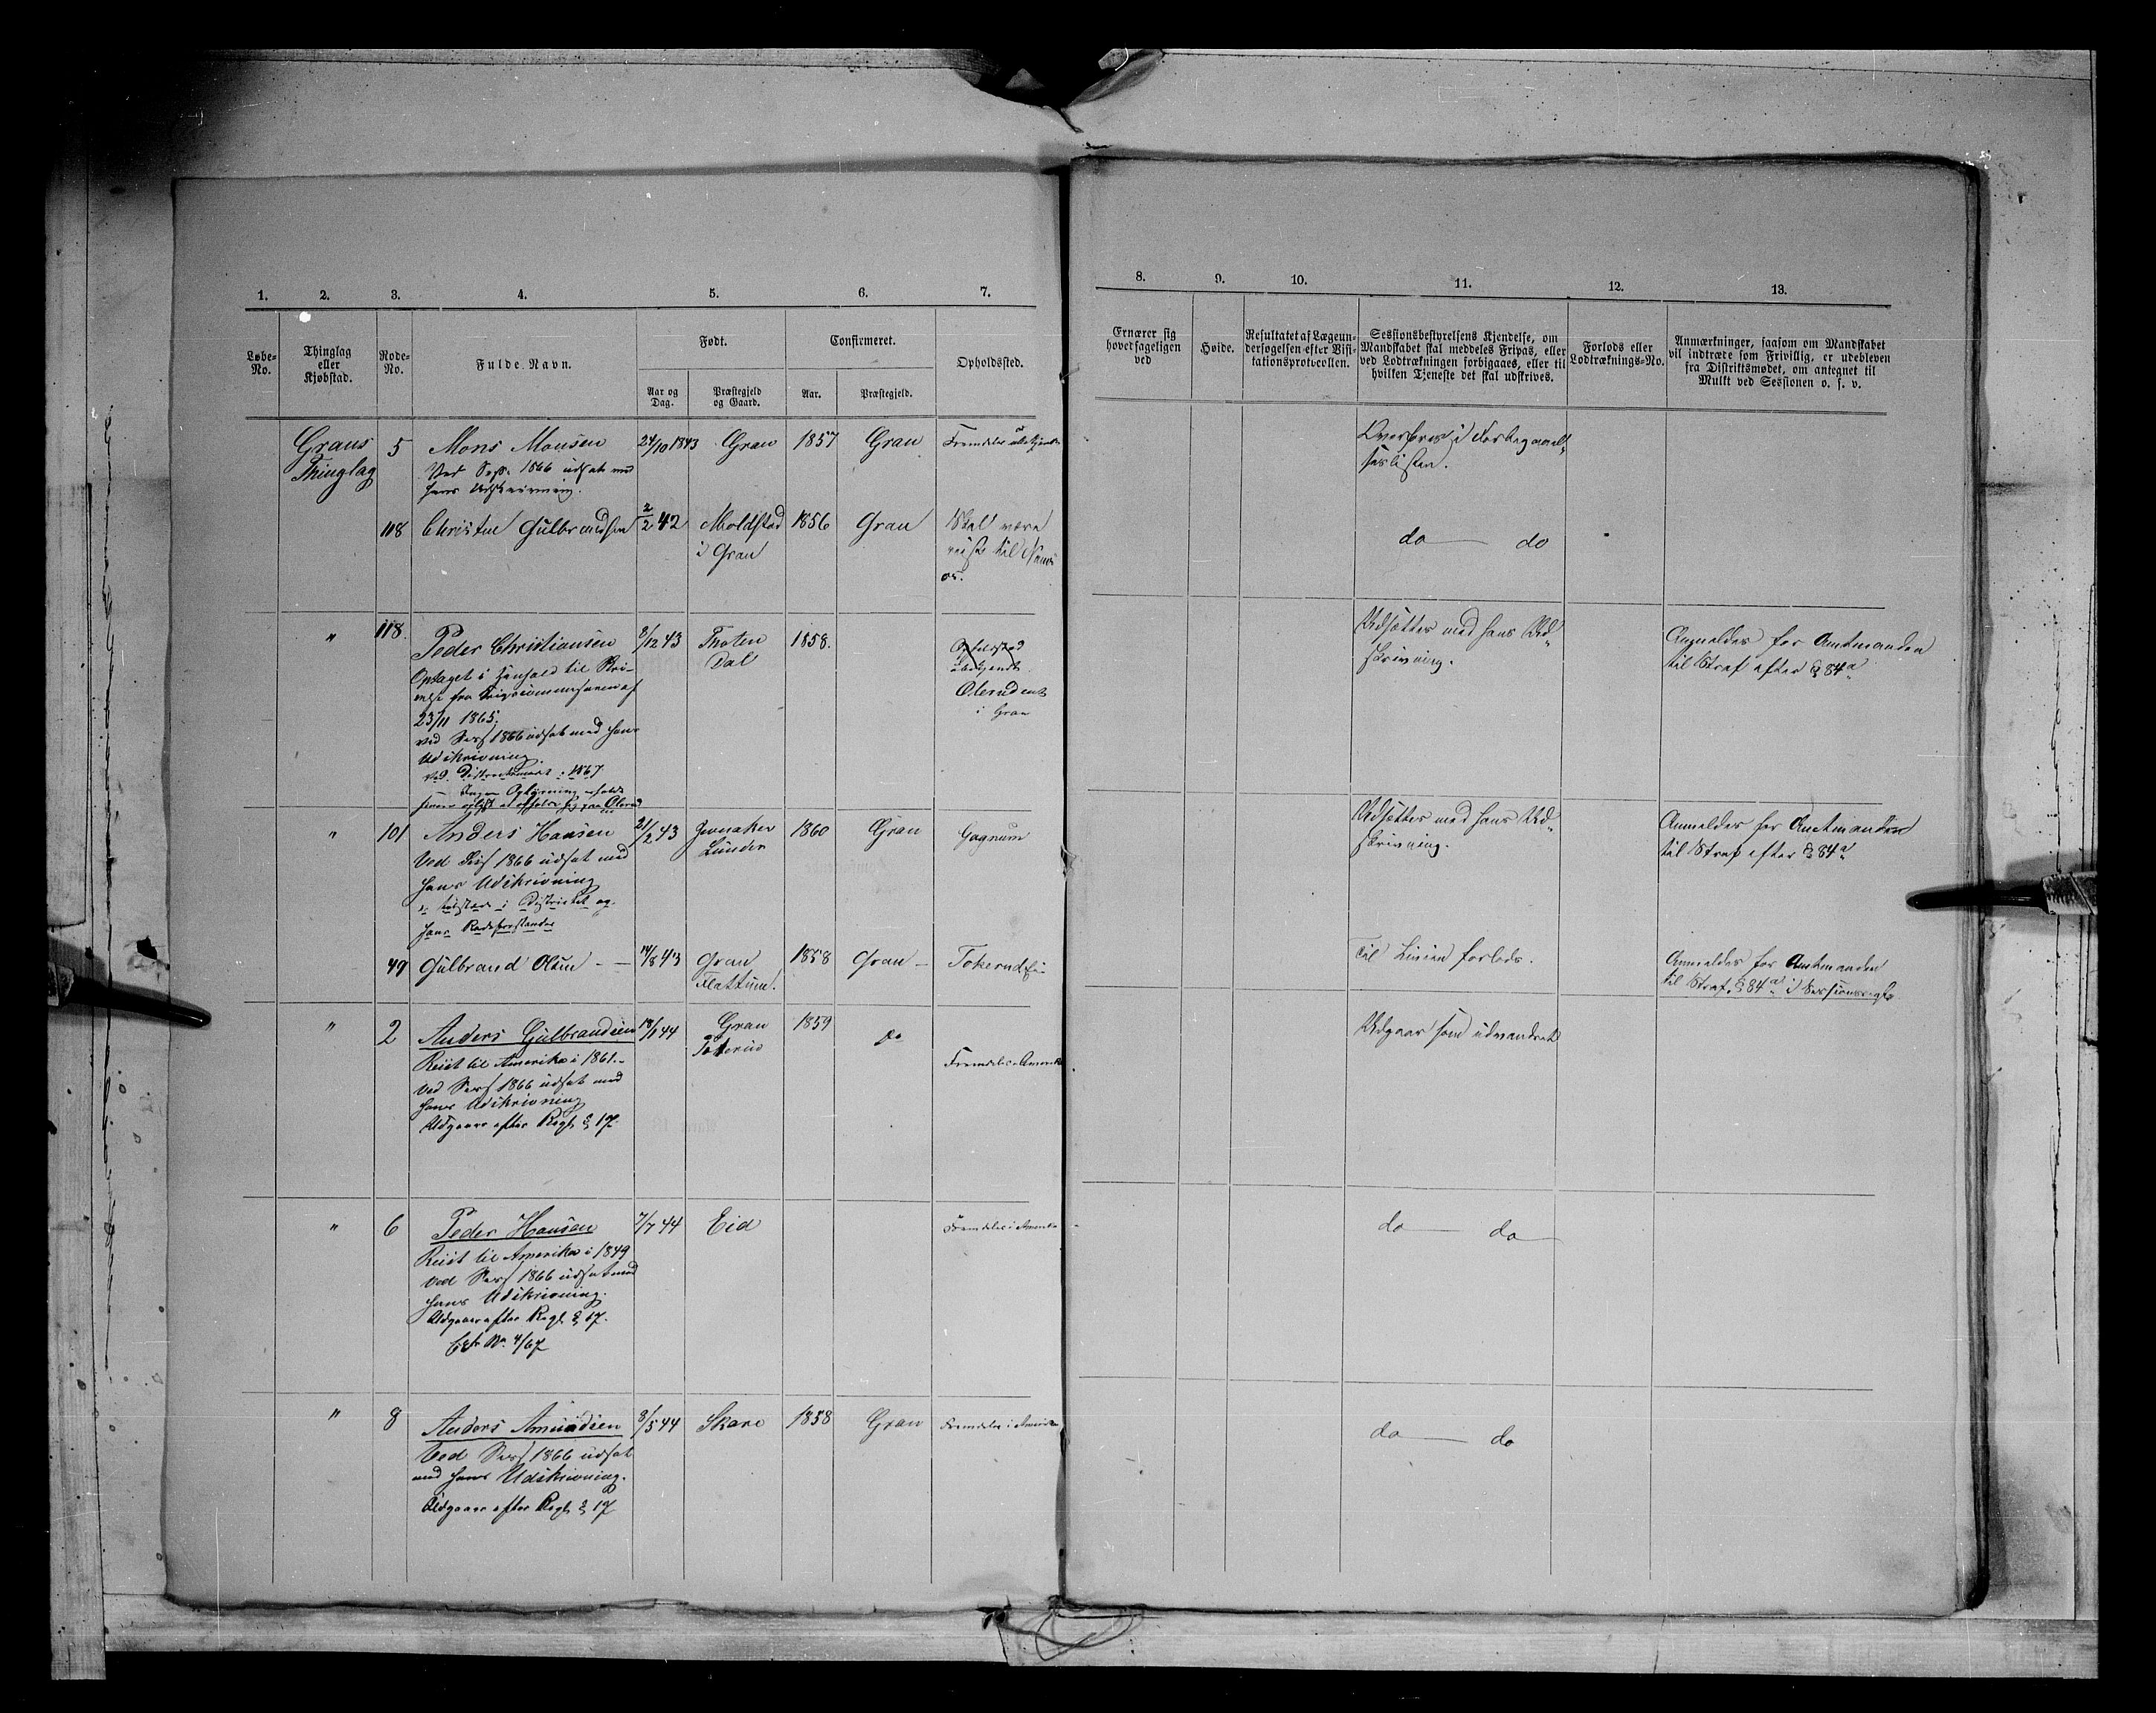 1. 2. 3. 4. 5. 6. 7.
8. 9. 10. 11. 12. 13.
Løbe-
No.
Thinglag
eller
Kjøbstad.
Rode-
No.
Fulde Navn.
Født.
Aar og
Dag.
Præstegjeld
og Gaard.
Confirmeret.
Aar.
Præstegjeld.
Opholdssted.
Ernærer sig
hovedsageligen
ved
Høide.
Resultatet af Lægeun-
dersøgelsen efter Visi-
tationsprotocollen.
Sessionsbestyrelsens Kjendelse, om
Mandskabet skal meddeles Fripas, eller
ved Lodtrækningen forbigaaes, eller til
hvilken Tjeneste det skal udskrives.
Forlods eller
Lodtræknings-No.
Anmærkninger, saasom om Mandskabet
vil indtræde som Frivillig, er udebleven
fra Distriktsmødet, om antegnet til
Mulkt ved Sessionen o. s. v.
Grans
Thinglag
5
Mons Monsen
Ved Sess. 1866 udsat med
hans Udskrivning.
24/10 1843
Gran
1857
Gran
Fremdeles ubekjendt
Overføres i Forbigaael-
seslisten.
118
Christen Gulbrandsen
2/2 42
Moldstad
i Gran
1856
Gran
Skal være
reist til
do — do
"
118.
Peder Christiansen
23/11 1865.
ved Sess 1866 udsat med hans
Udskrivning.
ved Distriktsmøde 1867
8/12 43
Thoten
Dal
1858.
Opholdssted
ubekjendt
i Gran
Udsættes med hans Ud-
skrivning.
Anmeldes for Amtmanden
til Straf efter § 84a
"
101
Anders Hansen
Ved Sess 1866 udsat med
hans Udskrivning
i Distriktet og
hans Rodeforstander
21/2 43
Jevnaker
Lunder
1860
Gran
Gagnum
Udsættes med hans Ud-
skrivning.
Anmeldes for Amtmanden
til Straf efter § 84a
49
Gulbrand Olsen
14/8 43
Gran
Flattum.
1858
Gran
Til Linien forlods.
Anmeldes for Amtmanden
til Straf. § 84a i
"
2
Anders Gulbrandsen
Reist til Amerika i 1861.
Ved Sess 1866 udsat med
hans Udskrivning
Udgaar efter Regl. § 17.
18/1 44
Gran
1859
do
Fremdeles i Amerika
Udgaar som udvandret
"
6
Peder Hansen
Reist til Amerika i 1849
Ved Sess 1866 udsat med
hans Udskrivning.
Udgaar efter Regl. § 17.
7/7 44
Eid
Fremdeles i Amerika
do — do
"
8
Anders Amundsen
Ved Sess 1866 udsat
med hans Udskrivning.
Udgaar efter Regl. § 17
8/5 44
Skare
1858
Gran
Fremdeles i Amerika
do — do